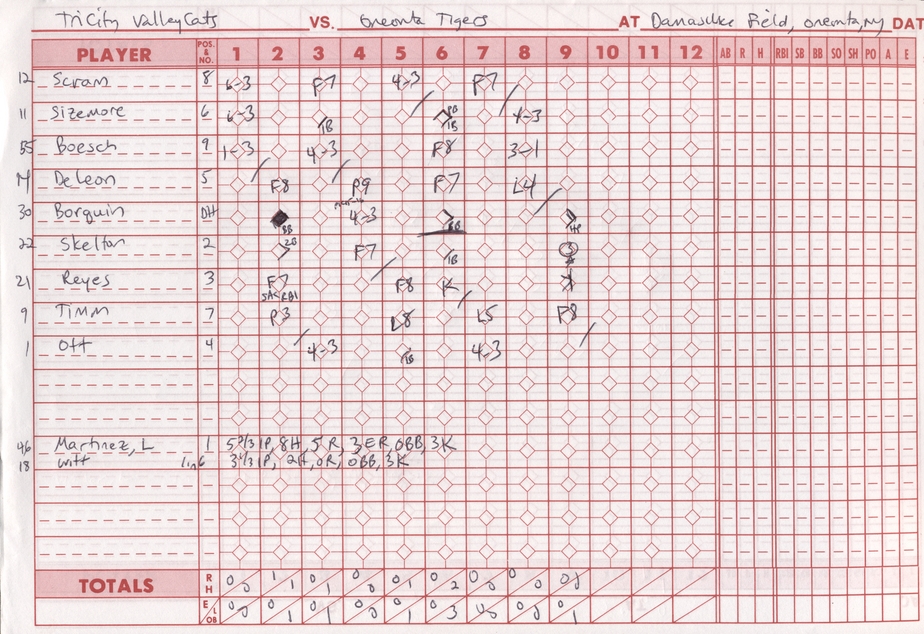 TriCity ValleyCats VS. Oneonta Tigers AT Damaschke Field, Oneonta, NY DAT
PLAYER POS. & NO. 1 2 3 4 5 6 7 8 9 10 11 12 AB R H RBI SB BB SO SH PO A E
12 Scram 8 6-3 F7 4-3 F7
11 Sizemore 6 6-3 1B BB 1B 4-3
55 Boesch 9 1-3 4-3 F8 3-1
14 DeLeon 5 F8 P9 F7 L4
30 Borquin DH BB 4-3 BB HP
22 Skelton 2 2B F7 1B
21 Reyes 3 F7 SAC RBI F8 K
9 Timm 7 P3 L8 L5 F8
1 Ott 4 4-3 1B 4-3
46 Martinez, L 1 5 2/3 IP, 8H, 5R, 3ER, 0BB, 3K
18 Witt 1 in 6 3 1/3 IP, 2H, 0R, 0BB, 3K
TOTALS R H 0 0 1 1 0 1 0 0 0 1 0 2 0 0 0 0 0 0
E LOB 0 0 0 1 0 1 0 0 0 1 0 3 0 0 0 0 0 1